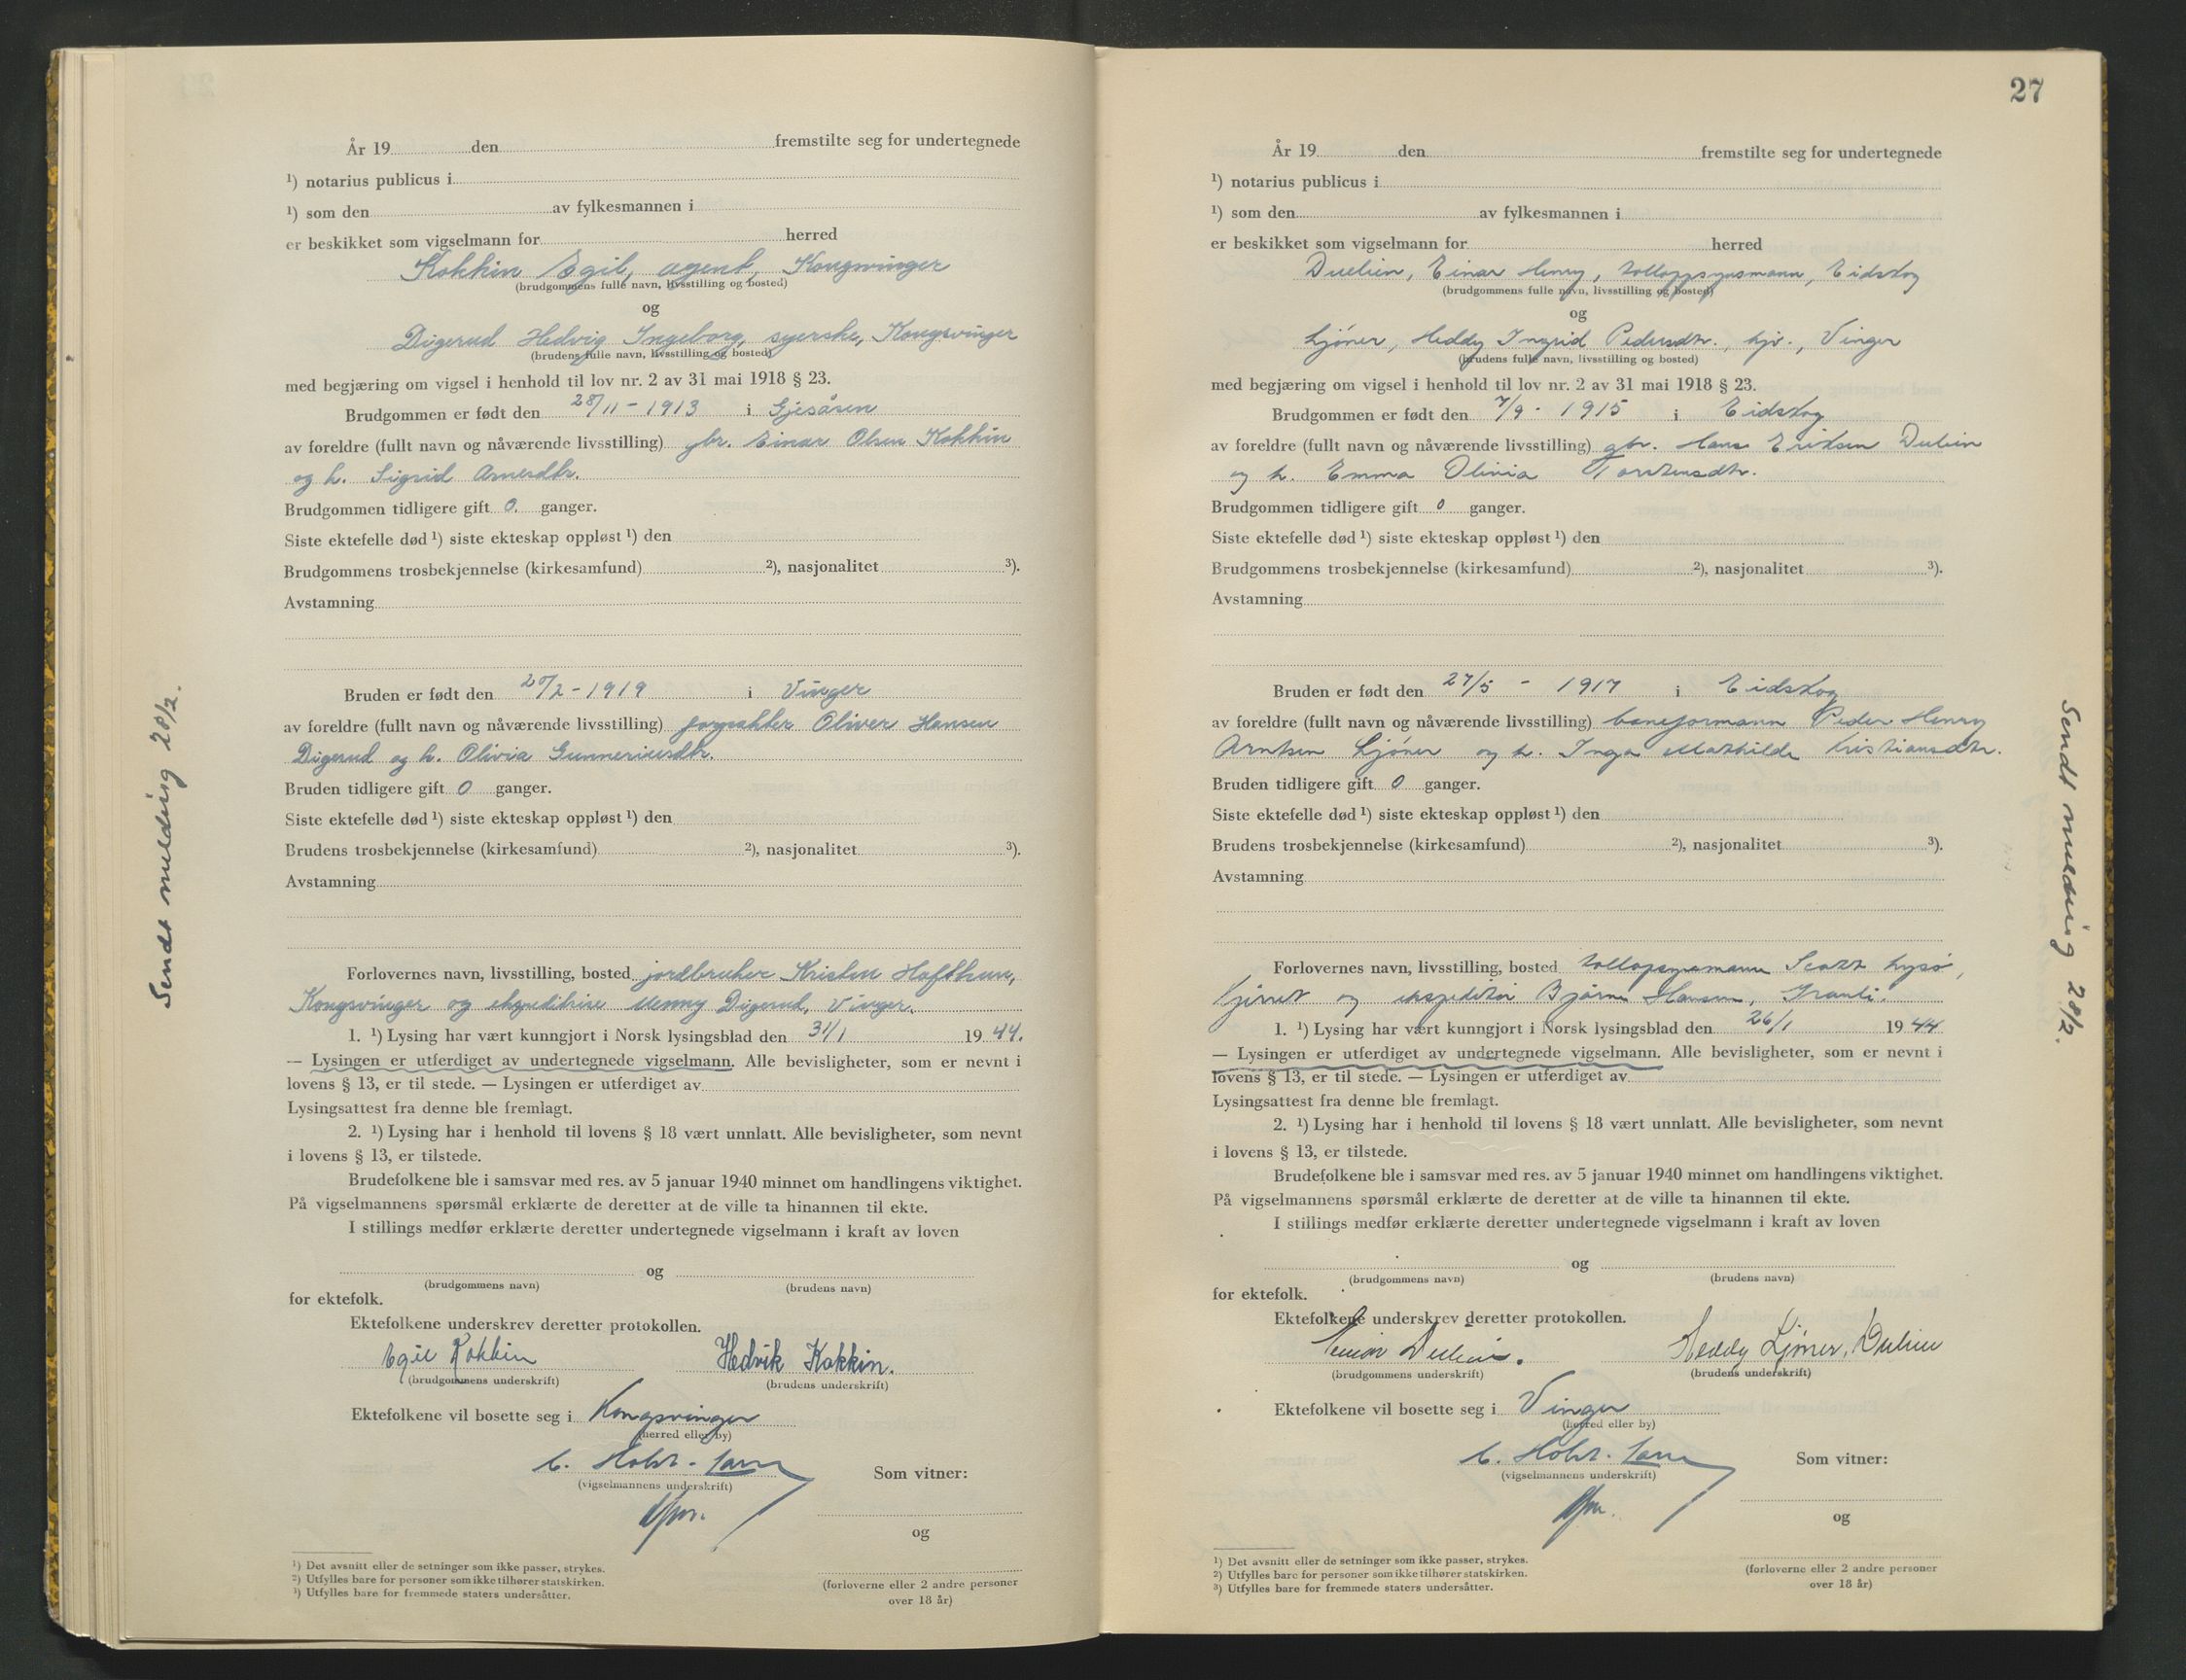 År 19 den fremstilte seg for undertegnede
¹) notarius publicus i
¹) som den av fylkesmannen i
er beskikket som vigselmann for herred
Kokkin Egil, agent, Kongsvinger
(brudgommens fulle navn, livsstilling og bosted)
og
Digerud Hedvig Ingeborg, syerske, Kongsvinger
(brudens fulle navn, livsstilling og bosted)
med begjæring om vigsel i henhold til lov nr. 2 av 31 mai 1918 § 23.
Brudgommen er født den 28/11 - 1913 i Gjesåsen
av foreldre (fullt navn og nåværende livsstilling) gbr. Einar Olsen Kokkin
og h. Sigrid Arnesdtr.
Brudgommen tidligere gift 0. ganger.
Siste ektefelle død ¹) siste ekteskap oppløst ¹) den
Brudgommens trosbekjennelse (kirkesamfund) ²), nasjonalitet ³).
Avstamning
Bruden er født den 20/2 - 1919 i Vinger
av foreldre (fullt navn og nåværende livsstilling) forpakter Oliver Hansen
Digerud og h. Olivia Gunneriusdtr.
Bruden tidligere gift 0 ganger.
Siste ektefelle død ¹) siste ekteskap oppløst ¹) den
Brudens trosbekjennelse (kirkesamfund) ²), nasjonalitet ³).
Avstamning
Forlovernes navn, livsstilling, bosted jordbruker Kristen Hafthun,
Kongsvinger og ekspeditrise Menny Digerud, Vinger.
1. ¹) Lysing har vært kunngjort i Norsk lysingsblad den 31/1 19 44.
— Lysingen er utferdiget av undertegnede vigselmann. Alle bevisligheter, som er nevnt i
lovens § 13, er til stede. — Lysingen er utferdiget av
Lysingsattest fra denne ble fremlagt.
2. ¹) Lysing har i henhold til lovens § 18 vært unnlatt. Alle bevisligheter, som nevnt
i lovens § 13, er tilstede.
Brudefolkene ble i samsvar med res. av 5 januar 1940 minnet om handlingens viktighet.
På vigselmannens spørsmål erklærte de deretter at de ville ta hinannen til ekte.
I stillings medfør erklærte deretter undertegnede vigselmann i kraft av loven
og
(brudgommens navn) (brudens navn)
for ektefolk.
Ektefolkene underskrev deretter protokollen.
Egil Kokkin Hedvik Kokkin.
(brudgommens underskrift) (brudens underskrift)
Ektefolkene vil bosette seg i Kongsvinger
(herred eller by)
C. Holst-
(vigselmannens underskrift) Som vitner:
og
¹) Det avsnitt eller de setninger som ikke passer, strykes.
²) Utfylles bare for personer som ikke tilhører statskirken.
³) Utfylles bare for fremmede staters undersåtter.
(forloverne eller 2 andre personer
over 18 år)
Sendt melding 28/2.
27
År 19 den fremstilte seg for undertegnede
¹) notarius publicus i
¹) som den av fylkesmannen i
er beskikket som vigselmann for herred
Duelien, Einar Henry, tolloppsynsmann, Eidskog
(brudgommens fulle navn, livsstilling og bosted)
og
Ljøner, Heddy Ingrid Pedersdtr., hjv., Vinger
(brudens fulle navn, livsstilling og bosted)
med begjæring om vigsel i henhold til lov nr. 2 av 31 mai 1918 § 23.
Brudgommen er født den 7/9 - 1915 i Eidskog
av foreldre (fullt navn og nåværende livsstilling) gbr. Hans Eriksen Dulien
og h. Emma Olivia Torstensdtr.
Brudgommen tidligere gift 0 ganger.
Siste ektefelle død ¹) siste ekteskap oppløst ¹) den
Brudgommens trosbekjennelse (kirkesamfund) ²), nasjonalitet ³).
Avstamning
Bruden er født den 27/5 - 1917 i Eidskog
av foreldre (fullt navn og nåværende livsstilling) baneformann Peder Henry
Arntsen Ljøner og h. Inga Mathilde Kristiansdtr.
Bruden tidligere gift 0 ganger.
Siste ektefelle død ¹) siste ekteskap oppløst ¹) den
Brudens trosbekjennelse (kirkesamfund) ²), nasjonalitet ³).
Avstamning
Forlovernes navn, livsstilling, bosted tollopsynsmann Scott Lysø,
og ekspeditør Bjarne Hansen, Granli.
1. ¹) Lysing har vært kunngjort i Norsk lysingsblad den 26/1 19 44
— Lysingen er utferdiget av undertegnede vigselmann. Alle bevisligheter, som er nevnt i
lovens § 13, er til stede. — Lysingen er utferdiget av
Lysingsattest fra denne ble fremlagt.
2. ¹) Lysing har i henhold til lovens § 18 vært unnlatt. Alle bevisligheter, som nevnt
i lovens § 13, er tilstede.
Brudefolkene ble i samsvar med res. av 5 januar 1940 minnet om handlingens viktighet.
På vigselmannens spørsmål erklærte de deretter at de ville ta hinannen til ekte.
I stillings medfør erklærte deretter undertegnede vigselmann i kraft av loven
og
(brudgommens navn) (brudens navn)
for ektefolk.
Ektefolkene underskrev deretter protokollen.
Einar Dulien. Heddy Ljøner, Dulien
(brudgommens underskrift) (brudens underskrift)
Ektefolkene vil bosette seg i Vinger
(herred eller by)
C. Holst-
(vigselmannens underskrift) Som vitner:
og
¹) Det avsnitt eller de setninger som ikke passer, strykes.
²) Utfylles bare for personer som ikke tilhører statskirken.
³) Utfylles bare for fremmede staters undersåtter.
(forloverne eller 2 andre personer
over 18 år)
Sendt melding 28/2.